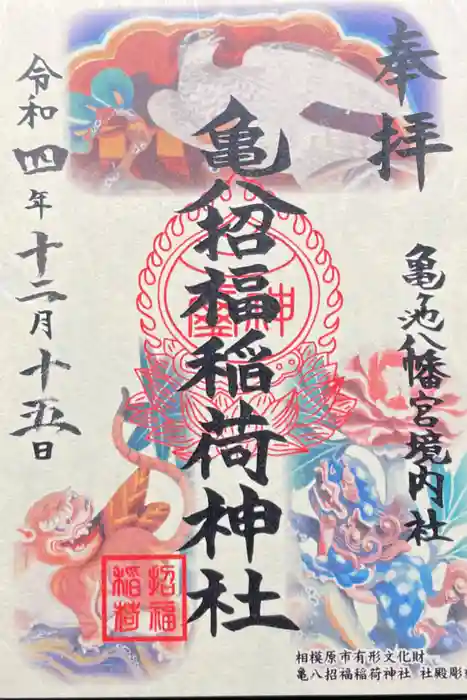 奉拝
亀ヶ池八幡宮境内社
亀八招福稲荷神社
令和四年十二月十五日
招福
稲荷
相模原市有形文化財
亀八招福稲荷神社 社殿彫